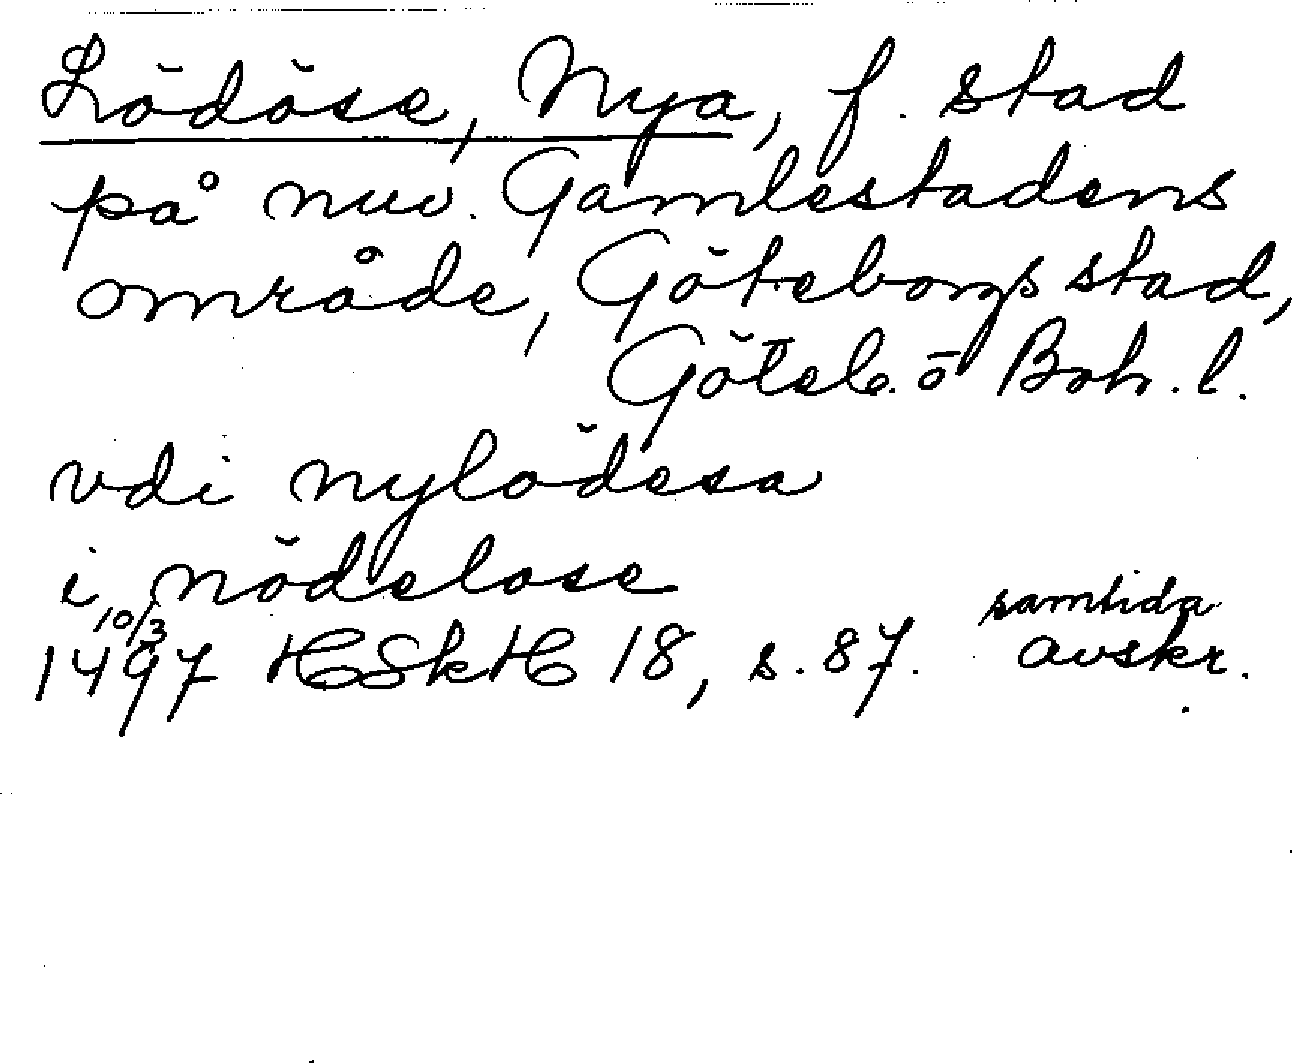 Lödöse, Nya, f. stad
på nuv. Gamlestadens
område, Göteborgs stad,
Göteb. o Boh. l.
vdi nylödesa
i nödelose
10/3 samtida
1497 HSkH 18, s. 87. avskr.